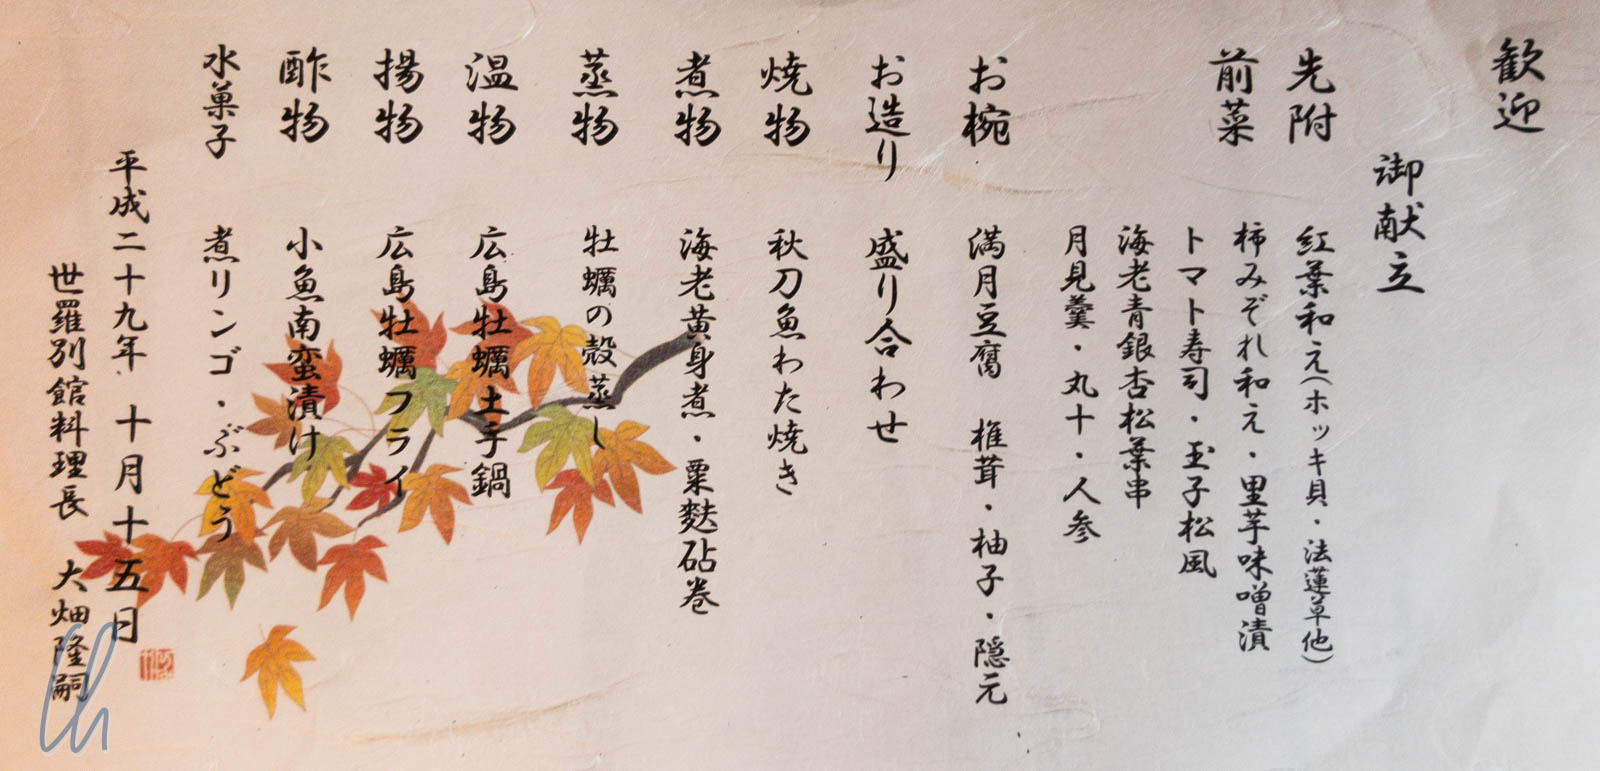 歓迎
御献立
先附 紅葉和え(ホッキ貝・法蓮草他)
前菜 柿みぞれ和え・里芋味噌漬
トマト寿司・玉子松風
海老青銀杏松葉串
月見羹・丸十・人参
お椀 満月豆腐 椎茸・柚子・隠元
お造り 盛り合わせ
焼物 秋刀魚わた焼き
煮物 海老黄身煮・粟麩砧巻
蒸物 牡蠣の殻蒸し
温物 広島牡蠣土手鍋
揚物 広島牡蠣フライ
酢物 小魚南蛮漬け
水菓子 煮リンゴ・ぶどう
平成二十九年 十月十五日
世羅別館料理長 大畑隆嗣